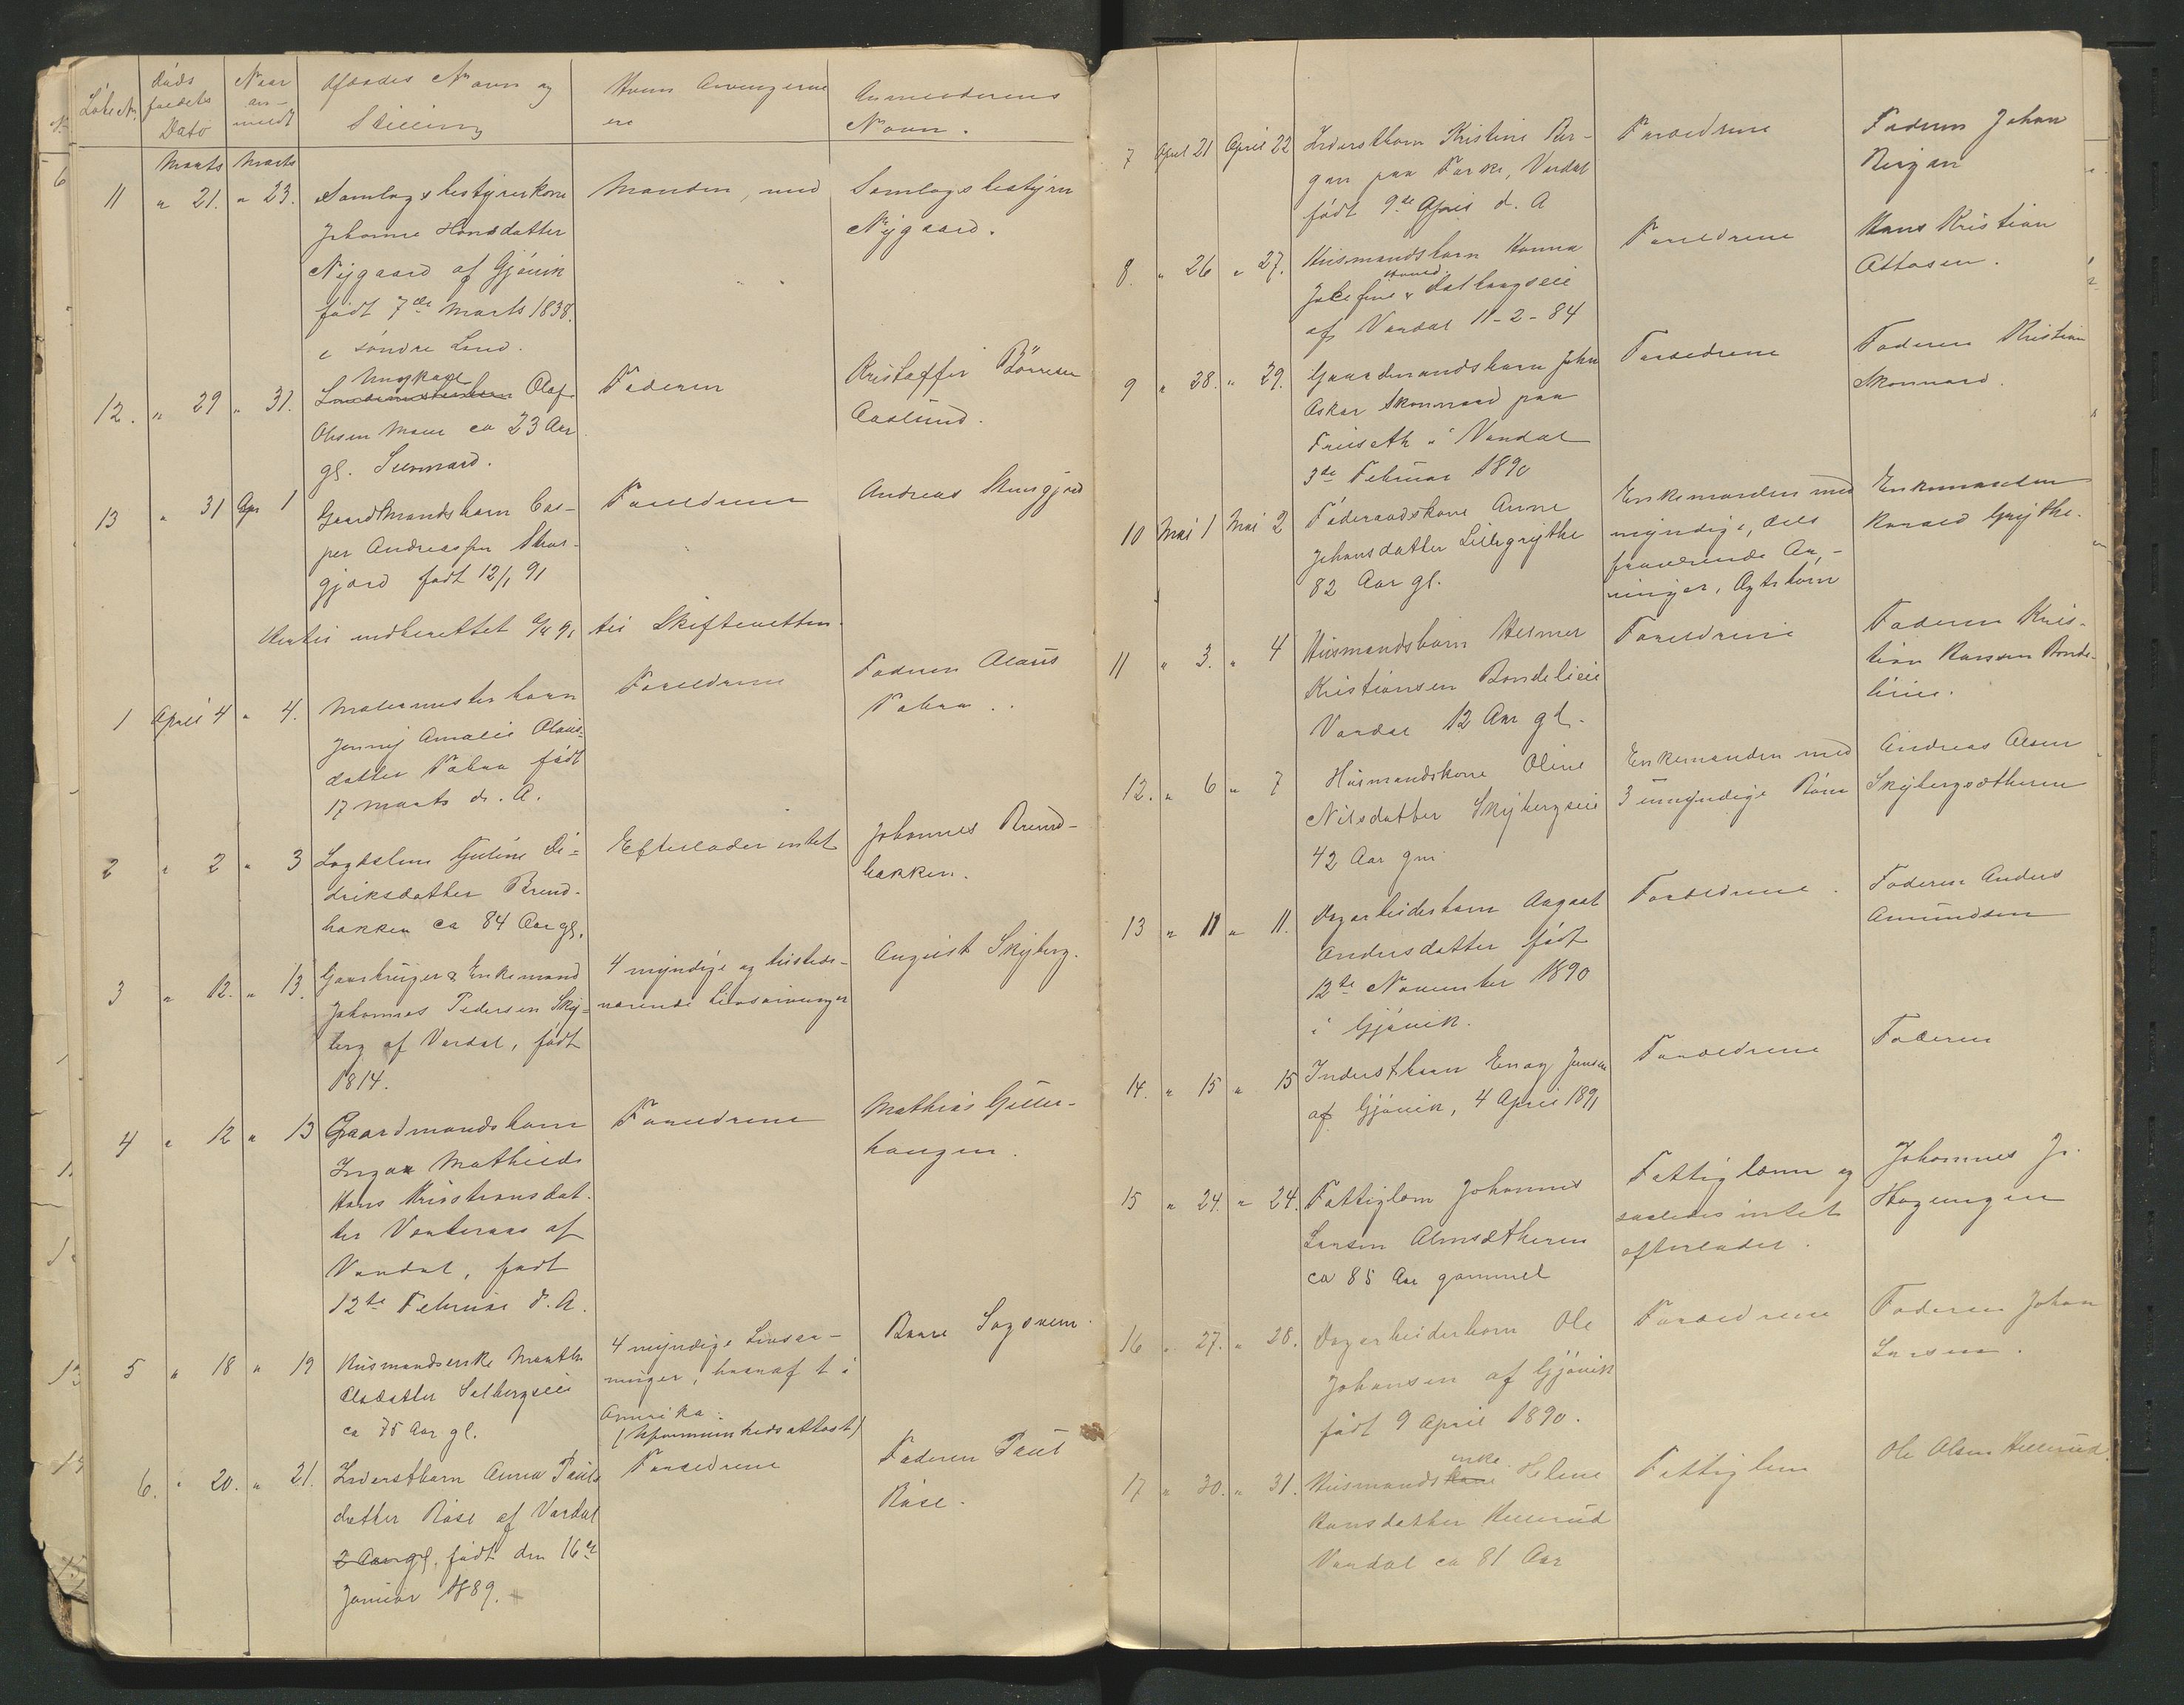 Løbe No. Døds faldets Dato Naar an-meldt Afdødes Navn og Stilling Hvem Arvingerne ere Anmelderens Navn.
Marts Marts
11 " 21. " 23. Samlagsbestyrerkone Manden, med Samlagsbestyrer
Johanne Hansdatter Nygaard.
Nygaard af Gjøvik
født 7de Marts 1838.
i søndre Land.
Ungkarl
12. " 29 " 31. Olaf Faderen Kristoffer Børresen
Olsen ca 23 Aar Aaslund.
gl.
13 " 31 Apr 1 Gaardmandsbarn Cas- Forældrene Andreas
per Andreassen Skus-
gjord født 12/1 91
indberettet til Skifteretten.
1 April 4 " 4. Malermesterbarn Forældrene Faderen Olaus
Jenny Amalie Olaus-
datter født
17 Marts d. A.
2 " 2 " 3 Lægdslem Guline Di- Efterlader intet Johannes Brend-
driksdatter Brend- bakken.
bakken ca 84 Aar gl.
3 " 12. " 13. Gaardbruger & Enkemand 4 myndige og tilstede- August Skyberg.
Johannes Pedersen Sky- værende Livsarvinger
berg af Vardal, født
1814.
4 " 12 " 13 Gaardmandsbarn Forældrene Mathias Giller-
Inga Mathilde haugen.
Hans Kristiansdat-
ter af
Vardal, født
12te Februar d. A.
5 " 18 " 19 Husmandsenke Marthe 4 myndige Livsar-
Olsdatter Solbergseie vinger, hvoraf 1 i
ca 75 Aar gl. Amerika.
6. " 20. " 21. Inderstbarn Anna Pauls Forældrene Faderen Paul
datter Røse af Vardal Røse.
2 Aar gl. født den 16de
Januar 1889.
7 April 21 April 22 Inderstbarn Kristine Ber- Forældrene Faderen Johan
gan paa Vardal Bergan
født 9de April d. A
8. " 26 " 27. Husmandsbarn Hanna Forældrene Hans Kristian
Josefine Dalbaugseie Ottosen.
af Vardal 11-2-84
9 " 28. " 29. Gaardmandsbarn John Forældrene Faderen Kristian
Oskar Skonnord paa Skonnord.
i Vardal
3de Februar 1890
10 Mai 1 Mai 2 Føderaadskone Anne Enkemanden med Enkemanden
Johansdatter Lillegrythe myndige, dels Harald Grythe.
82 Aar gl. fraværende Ar-
vinger,
11 " 3. " 4 Husmandsbarn Helmer Forældrene Faderen Kris-
Kristiansen Bondelieie tian Hansen Bonde-
Vardal 12 Aar gl. lieie.
12. " 6 " 7 Husmandskone Oline Enkemanden med Andreas Olsen
Nilsdatter Skybergseie 3 umyndige Børn Skybergsætheren
42 Aar gm.
13 " 11 " 11. Dagarbeiderbarn Aagaat Forældrene. Faderen Anders
Andersdatter født Amundsen
12te November 1890
i Gjøvik.
14. " 15 " 15 Inderstbarn Enag Jensen Forældrene Faderen
af Gjøvik, 4 April 1891
15 " 24. " 24. Fattiglem Johannes Fattiglem og Johannes Js.
Larsen Almsætheren saaledes intet Hageengen
ca 85 Aar gammel efterladt.
16 " 27. " 28. Dagarbeiderbarn Ole Forældrene Faderen Johan
Johansen af Gjøvik Larsen.
født 9 April 1890.
enke
17 " 30. " 31. Husmandskone Helene Fattiglem Ole Olsen Hillerud.
Hansdatter Hillerud
Vardal ca 81 Aar